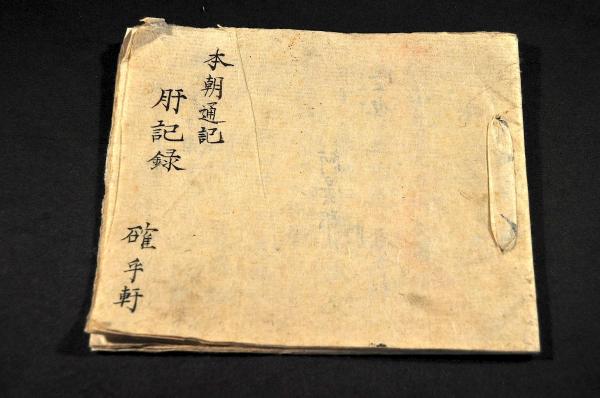 本朝通記
肝記録
確乎軒